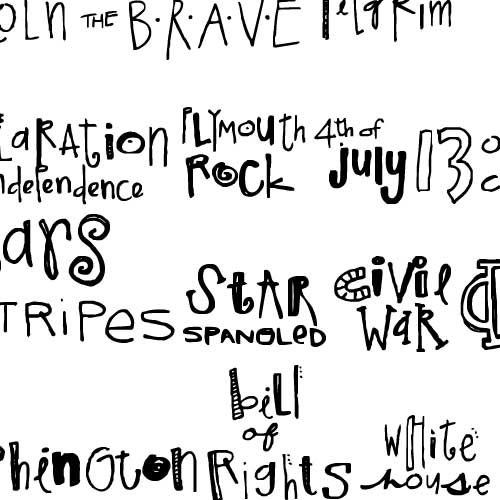 OLN THE B.R.A.V.E PILGRIM
LARATION PLYMOUTH 4th of 13
ndependence ROCK July
ARS
TRIPES STAR CIVIL
SPANGLED WAR
bill
of
HINGTON Rights WHITE
house